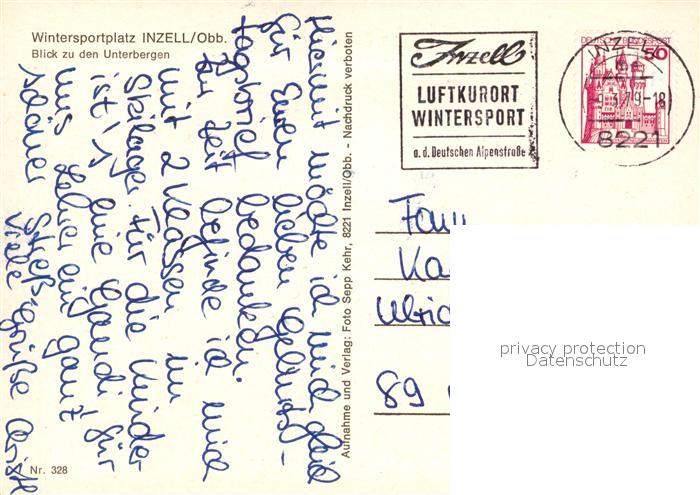 Wintersportplatz INZELL/Obb.
Blick zu den Unterbergen
Hiermit möchte ich mich gleich
für Euren lieben Geburts-
tagsbrief bedanken.
Zur Zeit befinde ich mich
mit 2 Klassen im
Skilager. Für die Kinder
ist's eine Gaudi für
uns Lehrer ein ganz
schöner Streß.
Viele Grüße
Nr. 328
Aufnahme und Verlag: Foto Sepp Kehr, 8221 Inzell/Obb. - Nachdruck verboten
Inzell
LUFTKURORT
WINTERSPORT
a. d. Deutschen Alpenstraße
DEUTSCHE BUNDESPOST
50
INZELL
79-18
8221
Fam
Ka
Ulric
89
privacy protection
Datenschutz